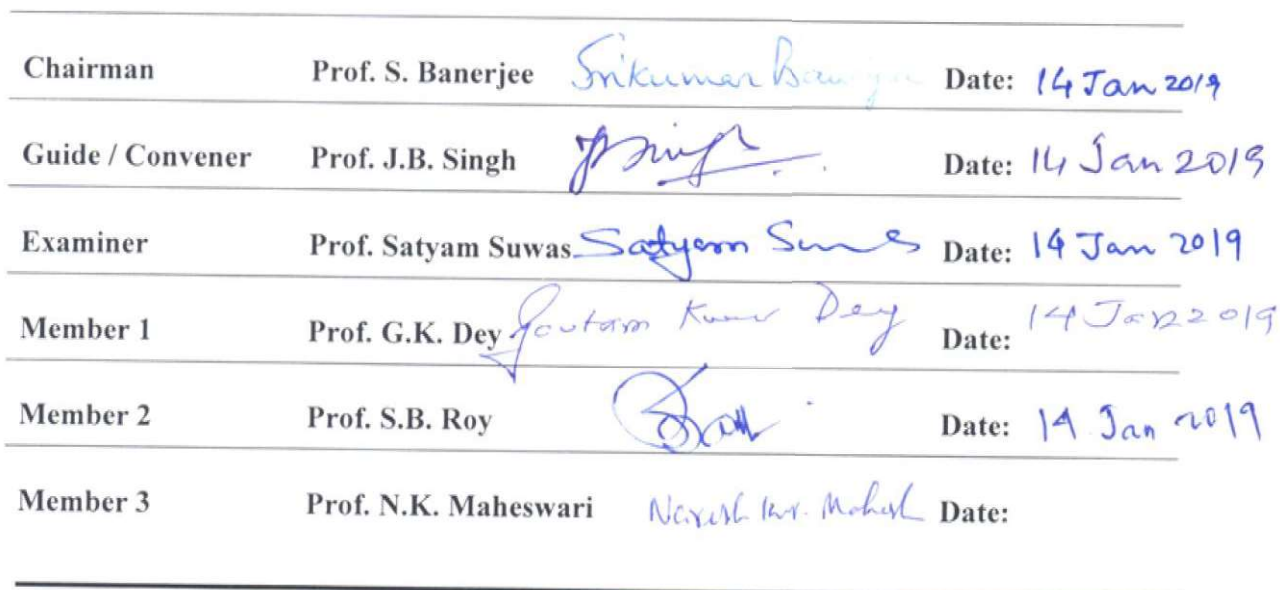 Chairman Prof. S. Banerjee Srikumar Banerjee Date: 14 Jan 2019
Guide / Convener Prof. J.B. Singh JBSingh Date: 14 Jan 2019
Examiner Prof. Satyam Suwas Satyam Suwas Date: 14 Jan 2019
Member 1 Prof. G.K. Dey Gautam Kumar Dey Date: 14 Jan 2019
Member 2 Prof. S.B. Roy Date: 14 Jan 2019
Member 3 Prof. N.K. Maheswari Naresh Kr. Mahesh Date: